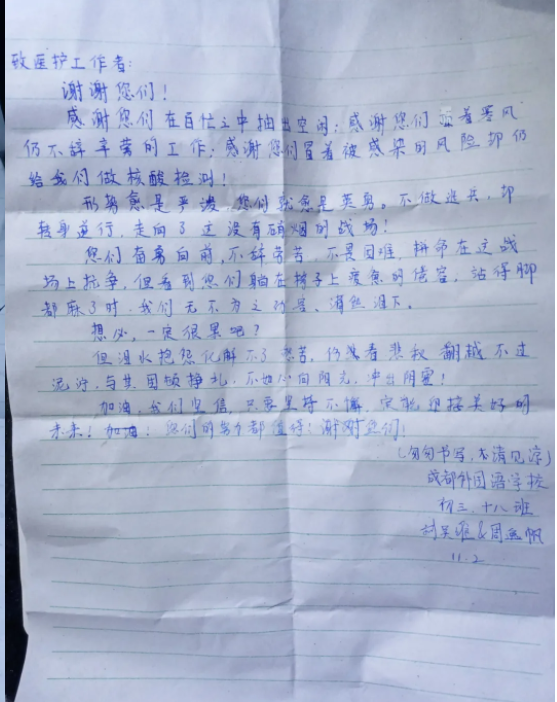 致医护工作者:
谢谢您们!
感谢您们在百忙之中抽出空闲;感谢您们 着寒风
仍不辞辛劳的工作;感谢您们冒着被感染的风险却仍
给我们做核酸检测!
形势愈是严峻,您们就愈是英勇。不做逃兵,却
转身逆行,走向了这没有硝烟的战场!
您们奋勇向前,不辞劳苦,不畏困难,拼命在这战
场上抗争,但看到您们躺在椅子上疲惫的 ,站得脚
都麻了时,我们无不为之动容、潸然泪下。
想必,一定很累吧?
但泪水 化解不了 苦,伤 着悲 翻越不过
泥泞,与其困顿挣扎,不如心向阳光,冲出阴霾!
加油,我们坚信,只要坚持不懈,定能迎接美好的
未来!加油!您们的 都值得!谢谢您们!
(匆匆书写,不清见谅)
成都外国语学校
初三、十八班
&周
11.2